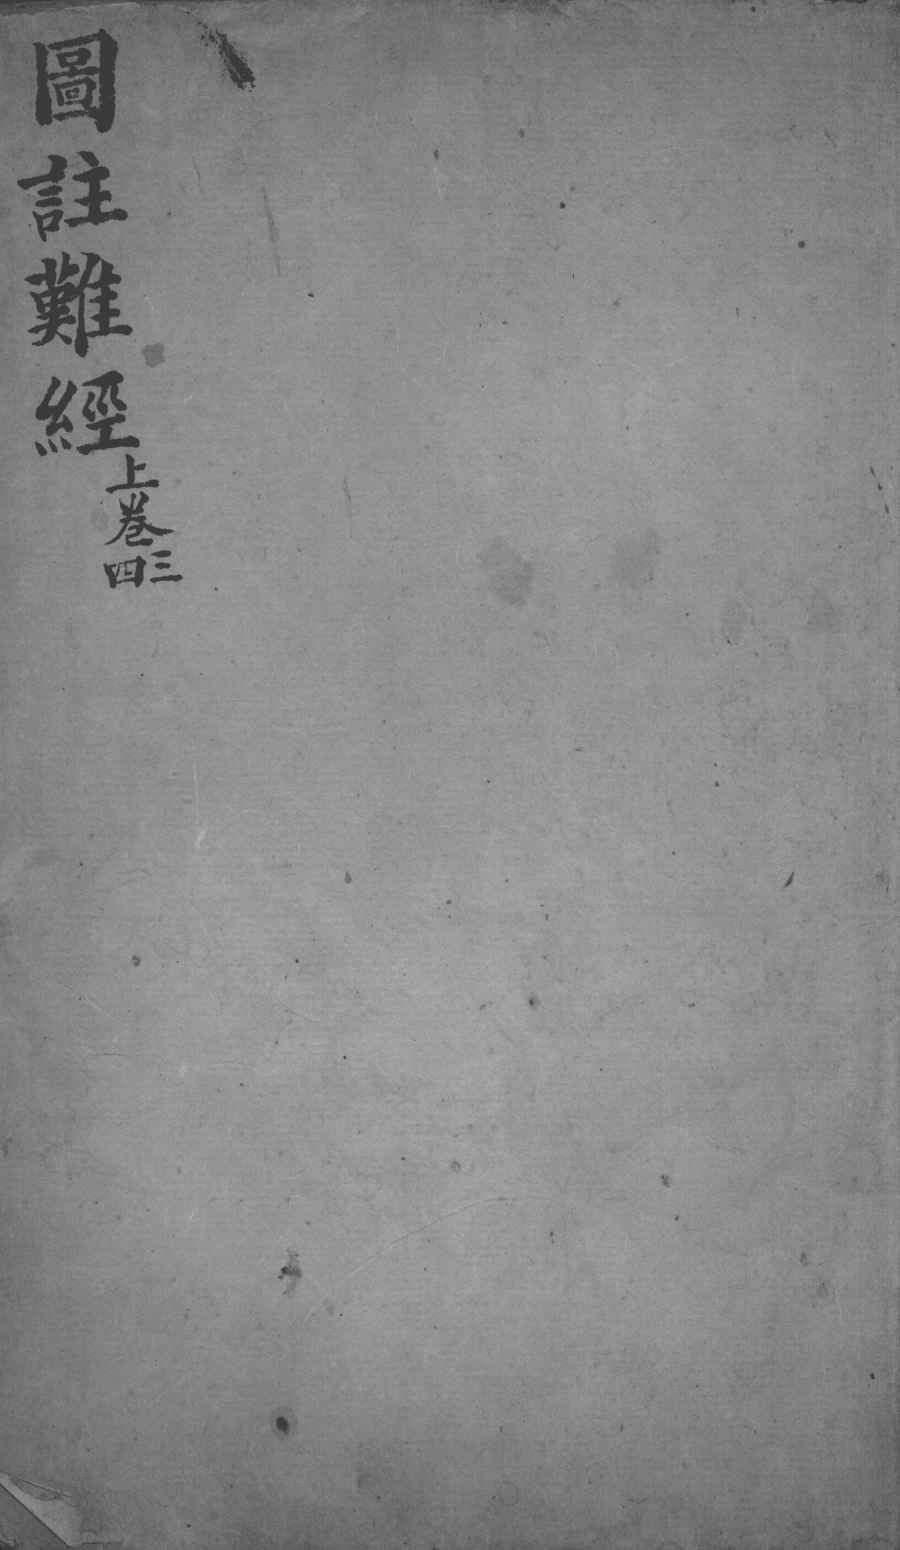 圖註難經
上卷三四